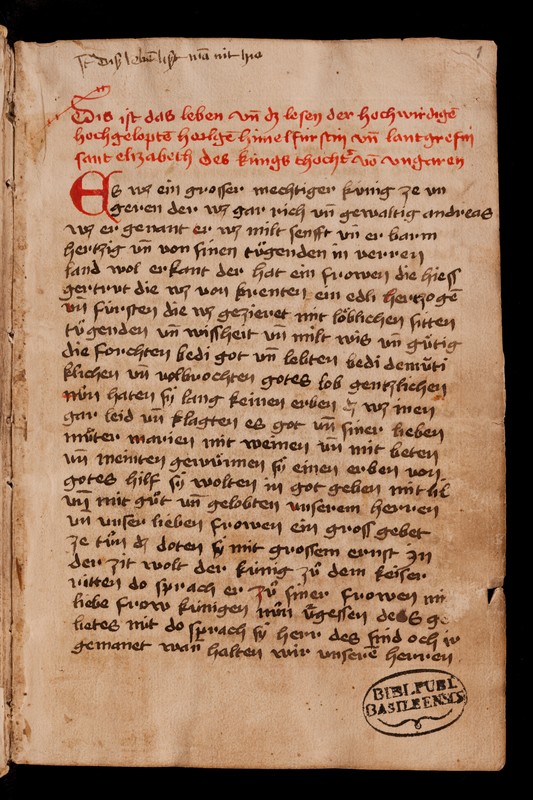 Dis lebē list mā nit hie
1
Dis ist das leben vn̄ dz lesen der hochwirdigē
hochgeloptē heilgē himelfürstin vn̄ lantgrefin
sant elizabeth des küngs thochtʾ vō vngaren
Es wz ein grosser mechtiger künig ze vn
geren der wz gar rich vn̄ gewaltig andreas
wz er genant er wz milt senfft vn̄ er barm
hertzig vn̄ von sinen tůgenden in verren
land wol erkant der hat ein frowen die hiess
gertrut die wz von krenten ein edli hertzogē
vn̄ fürsten die wz gezieret mit löblichen sitten
tůgenden vn̄ wissheit vn̄ milt wis vn̄ gůtig
die forchten bedi got vn̄ lebten bedi demůti
klichen vn̄ volbrochten gotes lob gentzlichen
nůn haten sÿ lang keinen erben dz wz inen
gar leid vn̄ klagten es got vn̄ siner lieben
můter marien mit weinen vn̄ mit beten
vn̄ meinten gewůnnen sÿ einen erben von
gotes hilf sÿ wolten in got geben mit lib
vn̄ mit gůt vn̄ gelobten unserem herren
vn̄ unser lieben frowen ein gross gebet
ze tůn dz doten sÿ mit grossem ernst In
der zit wolt der künig zů dem keiser
ritten do sprach er zů siner frowen mi
liebe frow künigen nůn vgessen des ge
lietes nit do sprach sÿ herr des sind och ir
gemanet wan̄ halten wir unserē herren
BIBL. PUBL.
BASILEENSIS